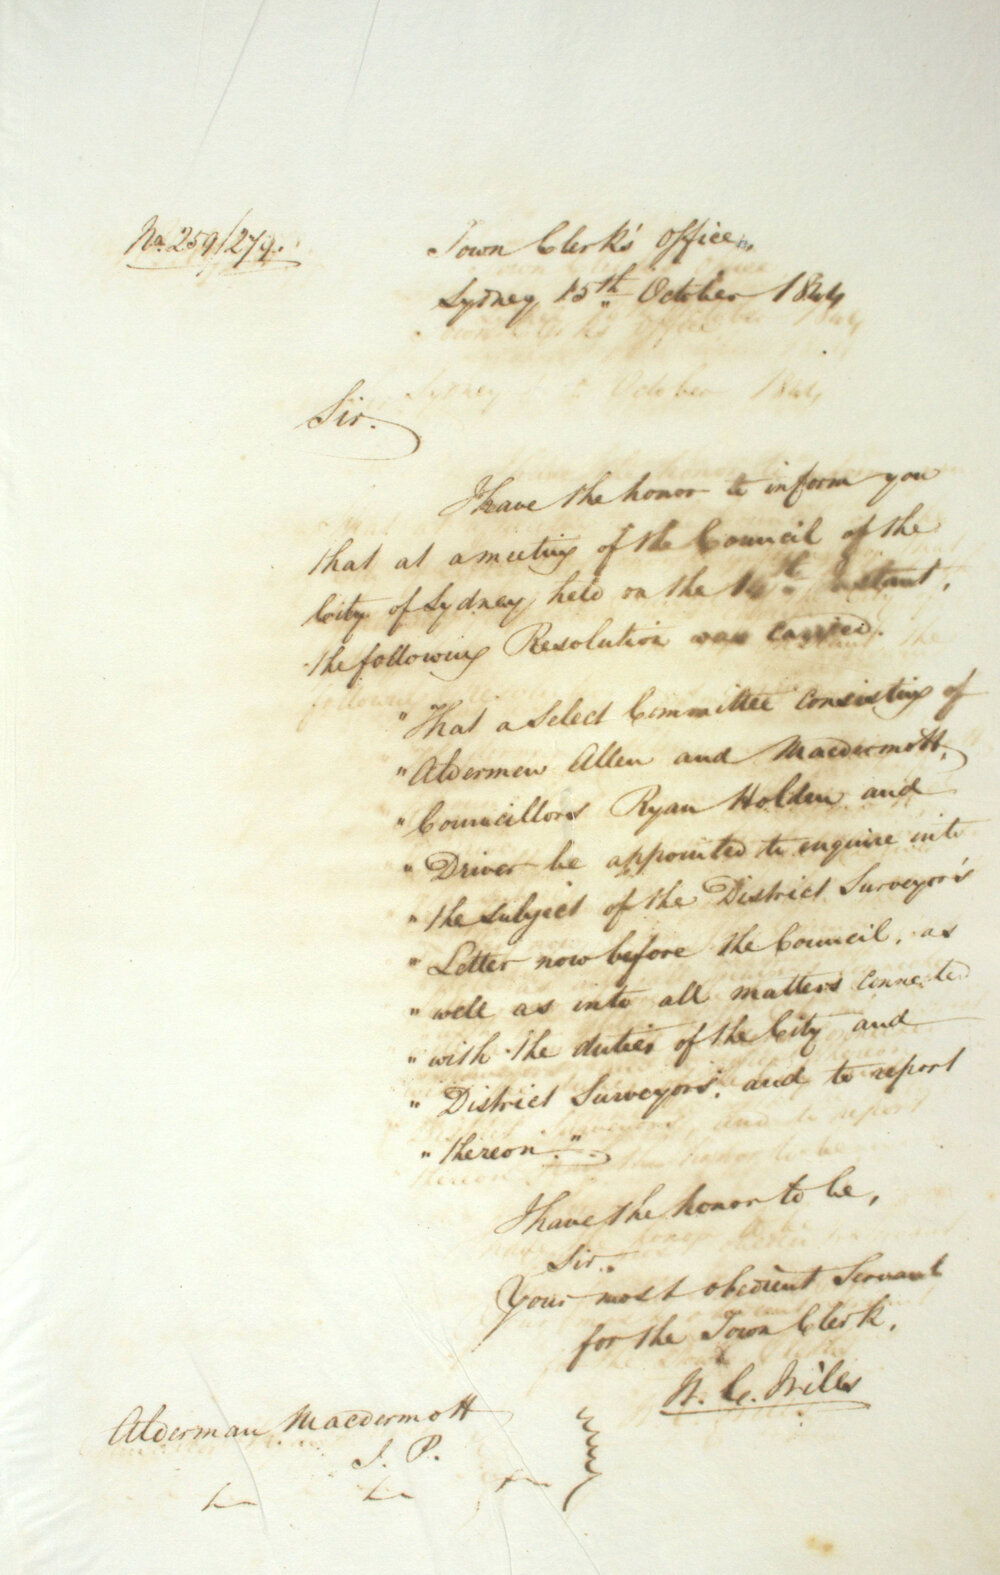 No. 259/279.
Town Clerk's Office,
Sydney, 15th October 1844
Sir.
I have the honor to inform you
that at a meeting of the Council of the
City of Sydney, held on the 14th Instant,
the following Resolution was carried.
"That a Select Committee consisting of
"Aldermen Allen and Macdermott,
"Councillors Ryan Holden and
"Driver be appointed to enquire into
"the subject of the District Surveyor's
"Letter now before the Council, as
"well as into all matters connected
"with the duties of the City and
"District Surveyors', and to report
"thereon."
I have the honor to be,
Sir.
Your most obedient Servant
for the Town Clerk,
Alderman Macdermott
J. P.